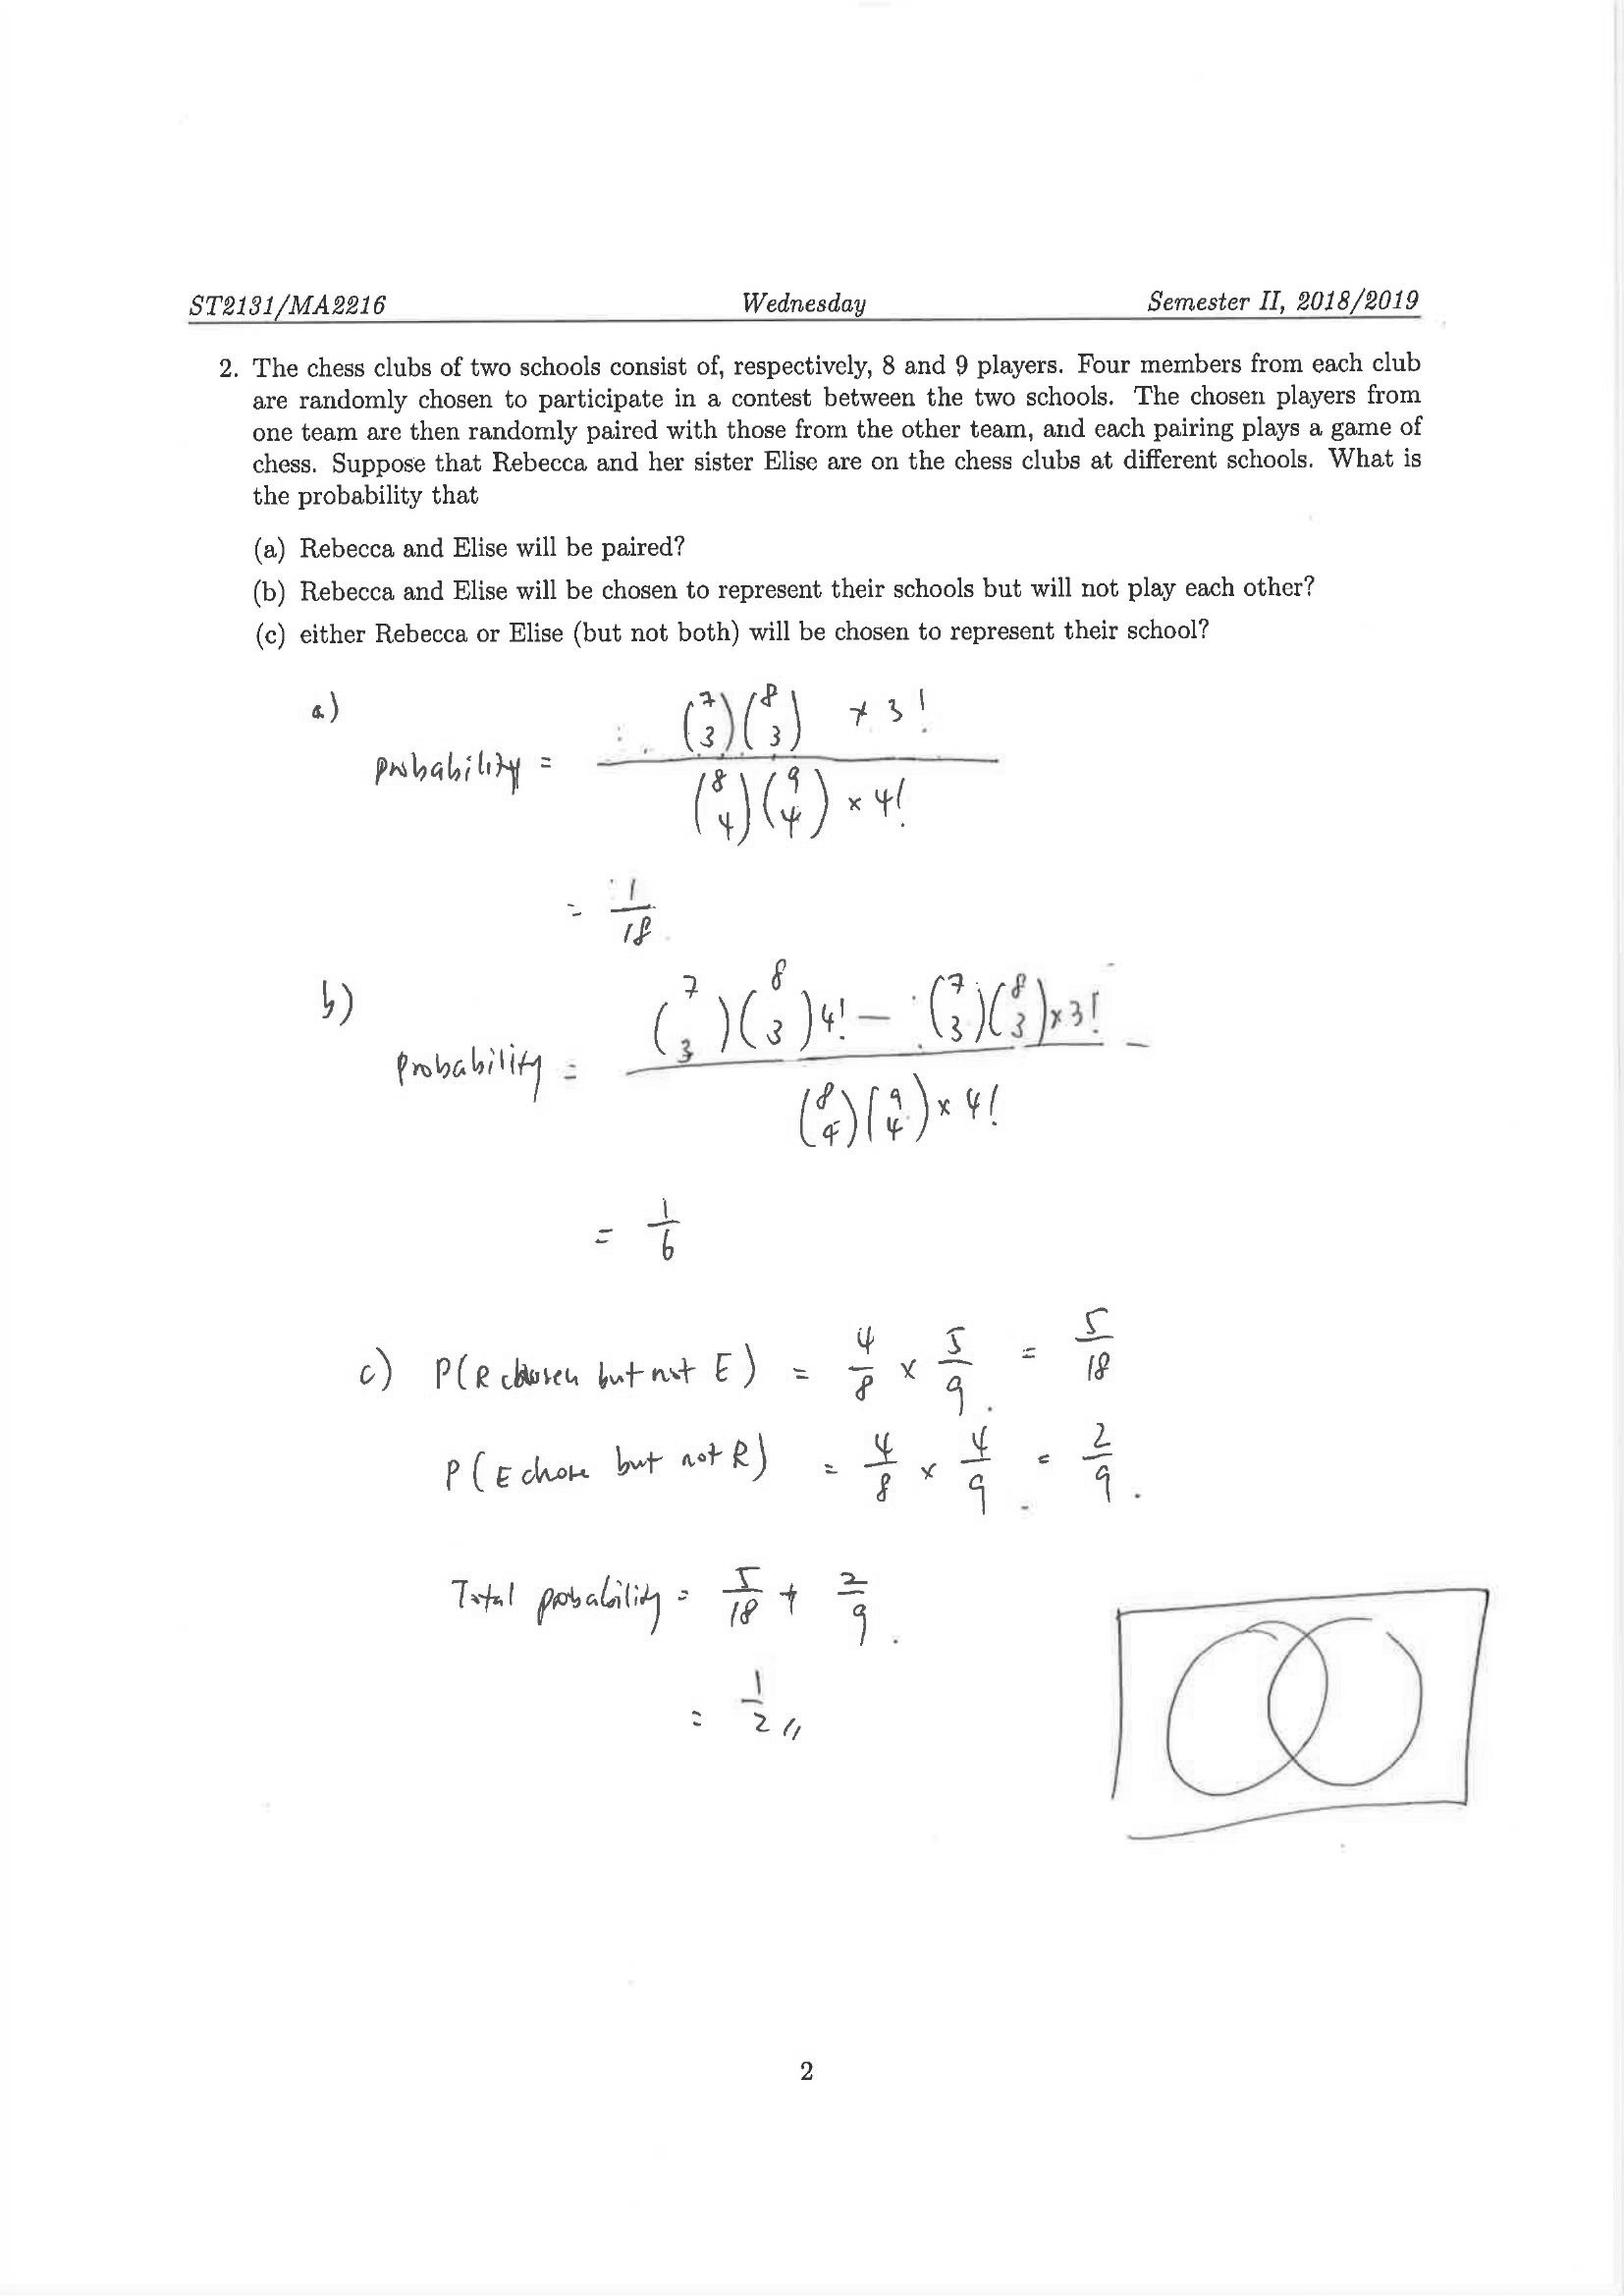 ST2131/MA2216 Wednesday Semester II, 2018/2019
2. The chess clubs of two schools consist of, respectively, 8 and 9 players. Four members from each club
are randomly chosen to participate in a contest between the two schools. The chosen players from
one team are then randomly paired with those from the other team, and each pairing plays a game of
chess. Suppose that Rebecca and her sister Elise are on the chess clubs at different schools. What is
the probability that
(a) Rebecca and Elise will be paired?
(b) Rebecca and Elise will be chosen to represent their schools but will not play each other?
(c) either Rebecca or Elise (but not both) will be chosen to represent their school?
a)
(7 3)(8 3) × 3!
probability = ―
(8 4)(9 4) × 4!
= 1/18
b)
(7 3)(8 3)4! − (7 3)(8 3)×3!
Probability = ―
(8 4)(9 4) × 4!
= 1/6
c) P(R chosen but not E) = 4/8 × 5/9. = 5/18
P(E chose but not R) = 4/8 × 4/9. = 2/9.
Total probability = 5/18 + 2/9.
= 1/2 //
2